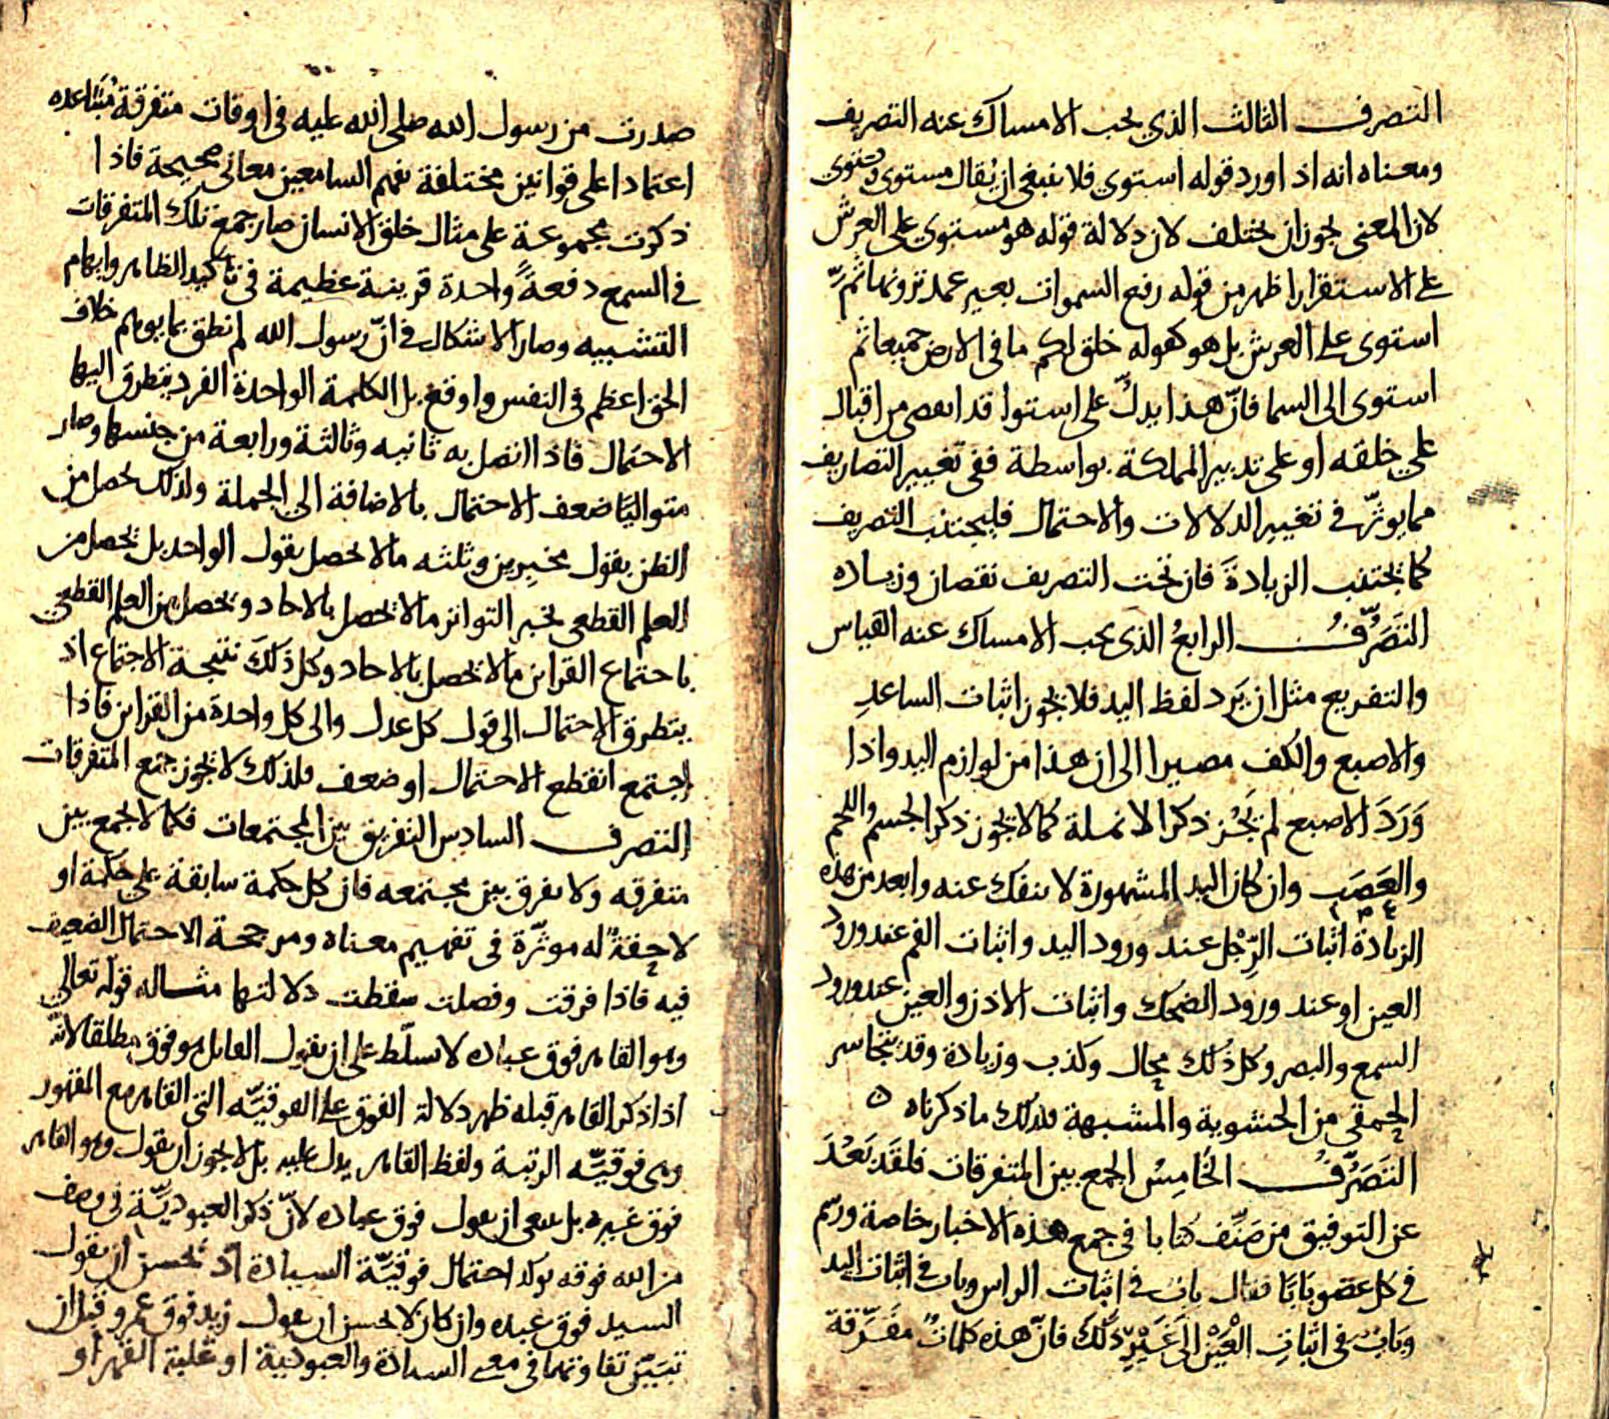 التصرف الثالث الذي يجب الامساك عنه التصريف
ومعناه انه اذا ورد قوله استوى فلا ينبغي ان يقال مستوى ويستوى
لان المعنى يجوز ان يختلف لان دلالة قوله هو مستوى على العرش
على الاستقرار اظهر من قوله رفع السموات بغير عمد ترونها ثم
استوى على العرش بل هو كقوله خلق لكم ما في الارض جميعا ثم
استوى الى السما فان هذا يدل على استوا قد انقضى من اقبال
على خلقه او على تدبير المملكة بواسطة ففي تغيير التصاريف
مما يوثر في تغيير الدلالات والاحتمال فليجتنب التصريف
كما يجتنب الزيادة فان تحت التصريف نقصان وزياده
التصرف الرابع الذي يجب الامساك عنه القياس
والتفريع مثل ان يرد لفظ اليد فلا يجوز اثبات الساعد
والاصبع والكف مصيرا الى ان هذا من لوازم اليد واذا
وَرَدَ الاصبع لم يجز ذكر الانملة كما لا يجوز ذكر الجسم واللحم
والعصب وان كان اليد المشهورة لا ينفك عنه وابعد من هذه
الزيادة اثبات الرِّجل عند ورود اليد واثبات الفم عند ورود
العين او عند ورود الضحك واثبات الاذن والعين عند ورود
السمع والبصر وكل ذلك محال وكذب وزيادة وقد يتجاسر
الحمقى من الحشوية والمشبهة فلذلك ما ذكرناه ه
التصرف الخامس الجمع بين المتفرقات فلقد بَعُدَ
عن التوفيق من صَنَّف كتابا في جمع هذه الاخبار خاصة ورسم
في كل عضو بابا فقال باب في اثبات الراس وباب في اثبات اليد
وباب في اثبات العين الى غير ذلك فان هذه كلمات مفرقة
صدرت من رسول الله صلى الله عليه في اوقات متفرقة متباعده
اعتمادا على قوانين مختلفة تفهم السامعين معاني صحيحة فاذا
ذكرت مجموعة على مثال خلق الانسان صار جمع تلك المتفرقات
في السمع دفعةً واحدة قرينة عظيمة في تاكيد الظاهر وايهام
التشبيه وصار الاشكال في انّ رسول الله لم نطق بما يوهم خلاف
الحق اعظم في النفس واوقع بل الكلمة الواحدة الفرد يتطرق اليها
الاحتمال فاذا اتصل به ثانيه وثالثة ورابعة من جنسها وصار
متواليًا ضعف الاحتمال بالاضافة الى الجملة ولذلك يحصل من
الظن بقول مخبرين وثلثه ما لا يحصل بقول الواحد بل يحصل من
العلم القطعي بخبر التواتر ما لا يحصل بالاحاد ويحصل من العلم القطعي
باجتماع القراين ما لا يحصل بالاحاد وكل ذلك نتيجة الاجتماع اذ
يتطرق الاحتمال الى قول كل عدل والى كل واحدة من القراين فاذا
اجتمع انقطع الاحتمال او ضعف فلذلك لا يجوز جمع المتفرقات
التصرف السادس التفريق بين المجتمعات فكما لا يجمع بين
متفرقه ولا يفرق بين مجتمعه فان كل حكمة سابقة على حكمة او
لاحقةٌ له موثّرة في تفهيم معناه ومرجحة الاحتمال الضعيف
فيه فاذا فرقت وفصلت سقطت دلالتها مثاله قوله تعالى
وهو القاهر فوق عباده لا تسلّط على ان يقول القايل هو فوق مطلقا لانّه
اذا ذكر القاهر قبله ظهر دلالة الفوق على الفوقيّه التي القاهر مع المقهور
وهي فوقيّه الرتبة ولفظ القاهر يدل عليه بل لا يجوز ان يقول وهو القاهر
فوق غيره بل ينبغي ان يقول فوق عباده لانّ ذكر العبوديّة في وصف
من الله فوقه يوكد احتمال فوقيّة السيادة اذ يحسن ان يقول
السيد فوق عبده وان كان لا يحسن ان يقول زيد فوق عمرو قبل ان
تبيّن تفاوتهما في معنى السيادة والعبودية او غلبة القهر او